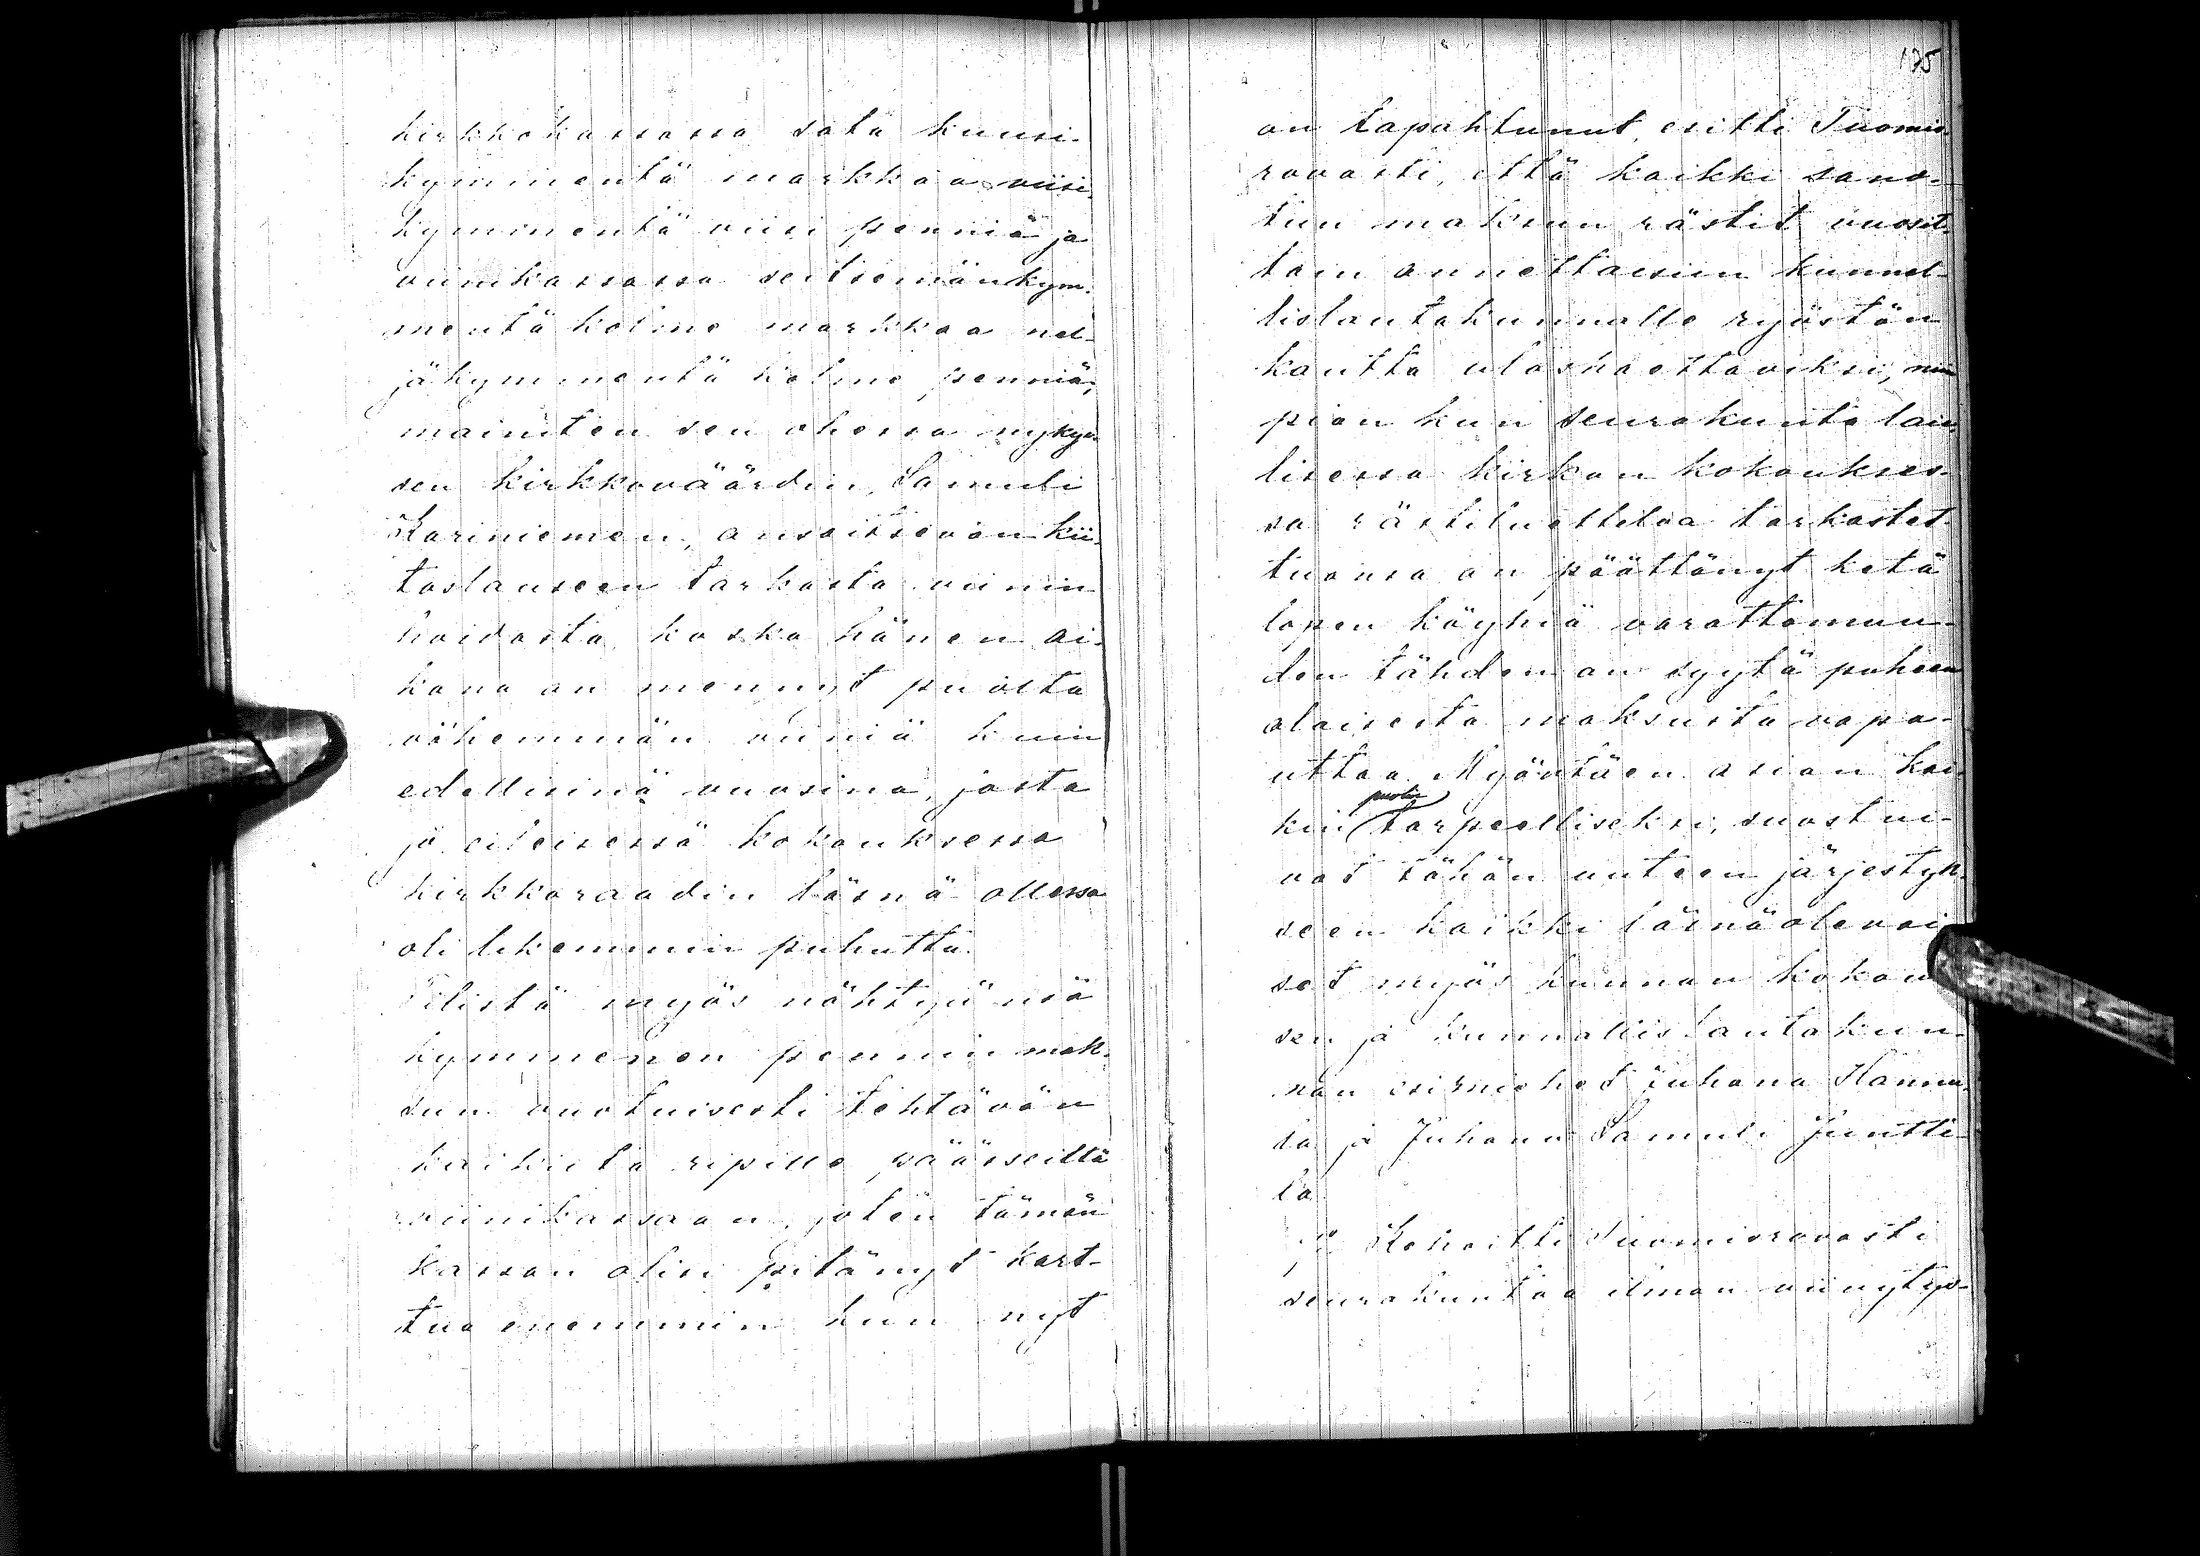 kirkkokassassa sata kuusi-
kymmentä markkaa viisi-
kymmentä viisi penniä ja
viinikassassa seitsemänkym-
mentä kolme markkaa nel-
jäkymmentä kolme penniä,
mainiten sen ohessa nykyi-
sen kirkkoväärdin, Samuli
Kariniemen, ansaitsevan kii-
toslauseen tarkasta viinin
hoidosta, koska hänen ai-
kana on mennyt puolta
vähemmän viiniä kuin
edellisinä vuosina, josta
jo eileisessä kokouksessa
kirkkoraadin läsnä ollessa
oli likemmin puhuttu.
Tilistä myös nähtyänsä
kymmenen pennin mak-
sun vuotuisesti tehtävän
kaikilta ripille pääseiltä
viinikassaan, joten tämän
kassan olisi pitänyt kart-
tua enemmin kun nyt
135
on tapahtunut, esitti Tuomio-
rovasti, että kaikki sano-
tun maksun rästit vuosit-
tain annettaisiin kunnal-
lislautakunnalle ryöstön
kautta uloshaettaviksi, niin
pian kun seurakunta lail-
lisessa kirkon kokoukses-
sa rästiluetteloa tarkastet-
tuansa on päättänyt ketä
lopen köyhiä varattomuu-
den tähden on syytä puheen
alaisesta maksusta vapa-
uttaa. Myöntäen asian kai-
puolin
kin tarpeelliseksi, suostui-
vat tähän uuteen järjestyk-
seen kaikki läsnäolevai-
set myös kunnan kokouk-
sen ja kunnallislautakun-
nan esimiehet Juhana Hannu-
la ja Juhana Samuli Juntti-
la.
Kehoitti Tuomiorovasti
seurakuntaa ilman viivytys-